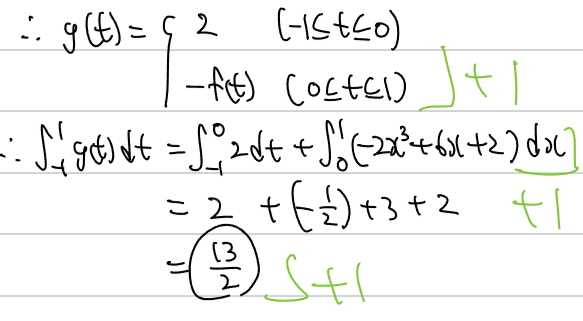 ∴ g(t) = { 2 (-1≤t≤0)
-f(t) (0≤t≤1) +1
∴ ∫₋₁¹ g(t)dt = ∫₋₁⁰ 2dt + ∫₀¹ (-2x³+6x+2) dx
= 2 + (-1/2) + 3 + 2 +1
= 13/2 +1